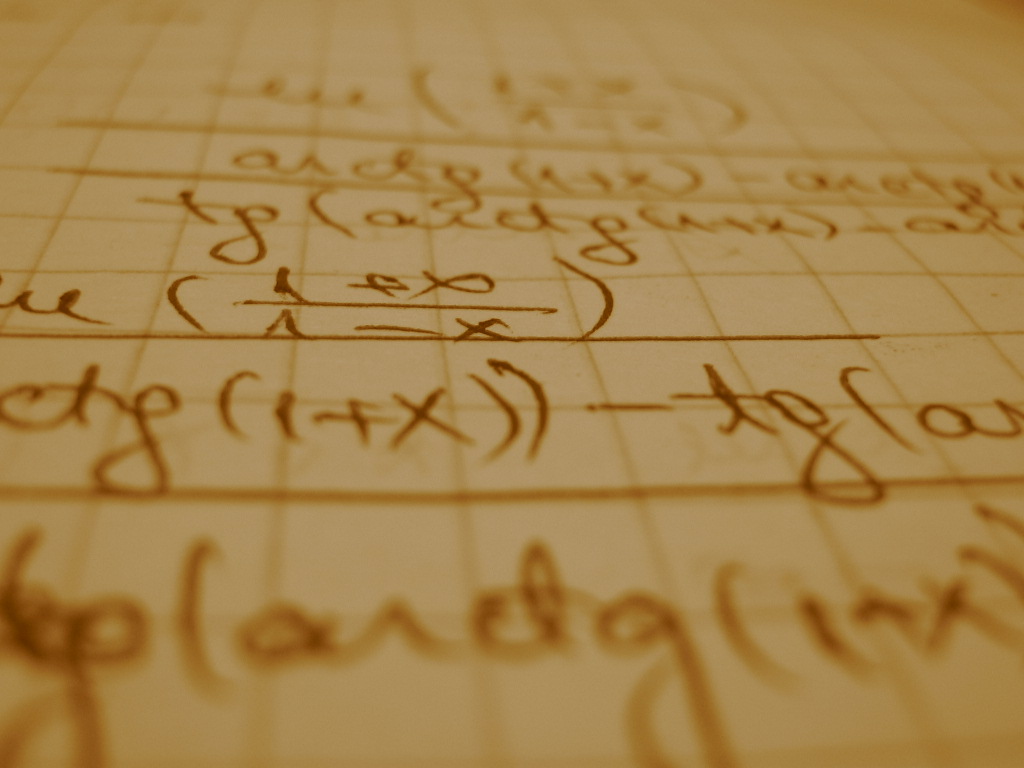 ln (1+x / 1-x)
arctg (1+x) - arctg (1
tg (arctg (1+x) - arc
ln (1+x / 1-x)
ctg (1+x)) - tg (ar
tg (arctg (1+x)